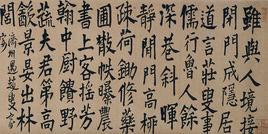 雖與人境接
閉門成隱居
道言莊叟事
儒行魯人餘
深巷斜暉
靜閒門高柳
疎荷鋤修藥
圃散帙曝農
書上客搖芳
翰中厨饋野
蔬夫君第高
飲景晏出林
閭
濟州過趙叟家
宴